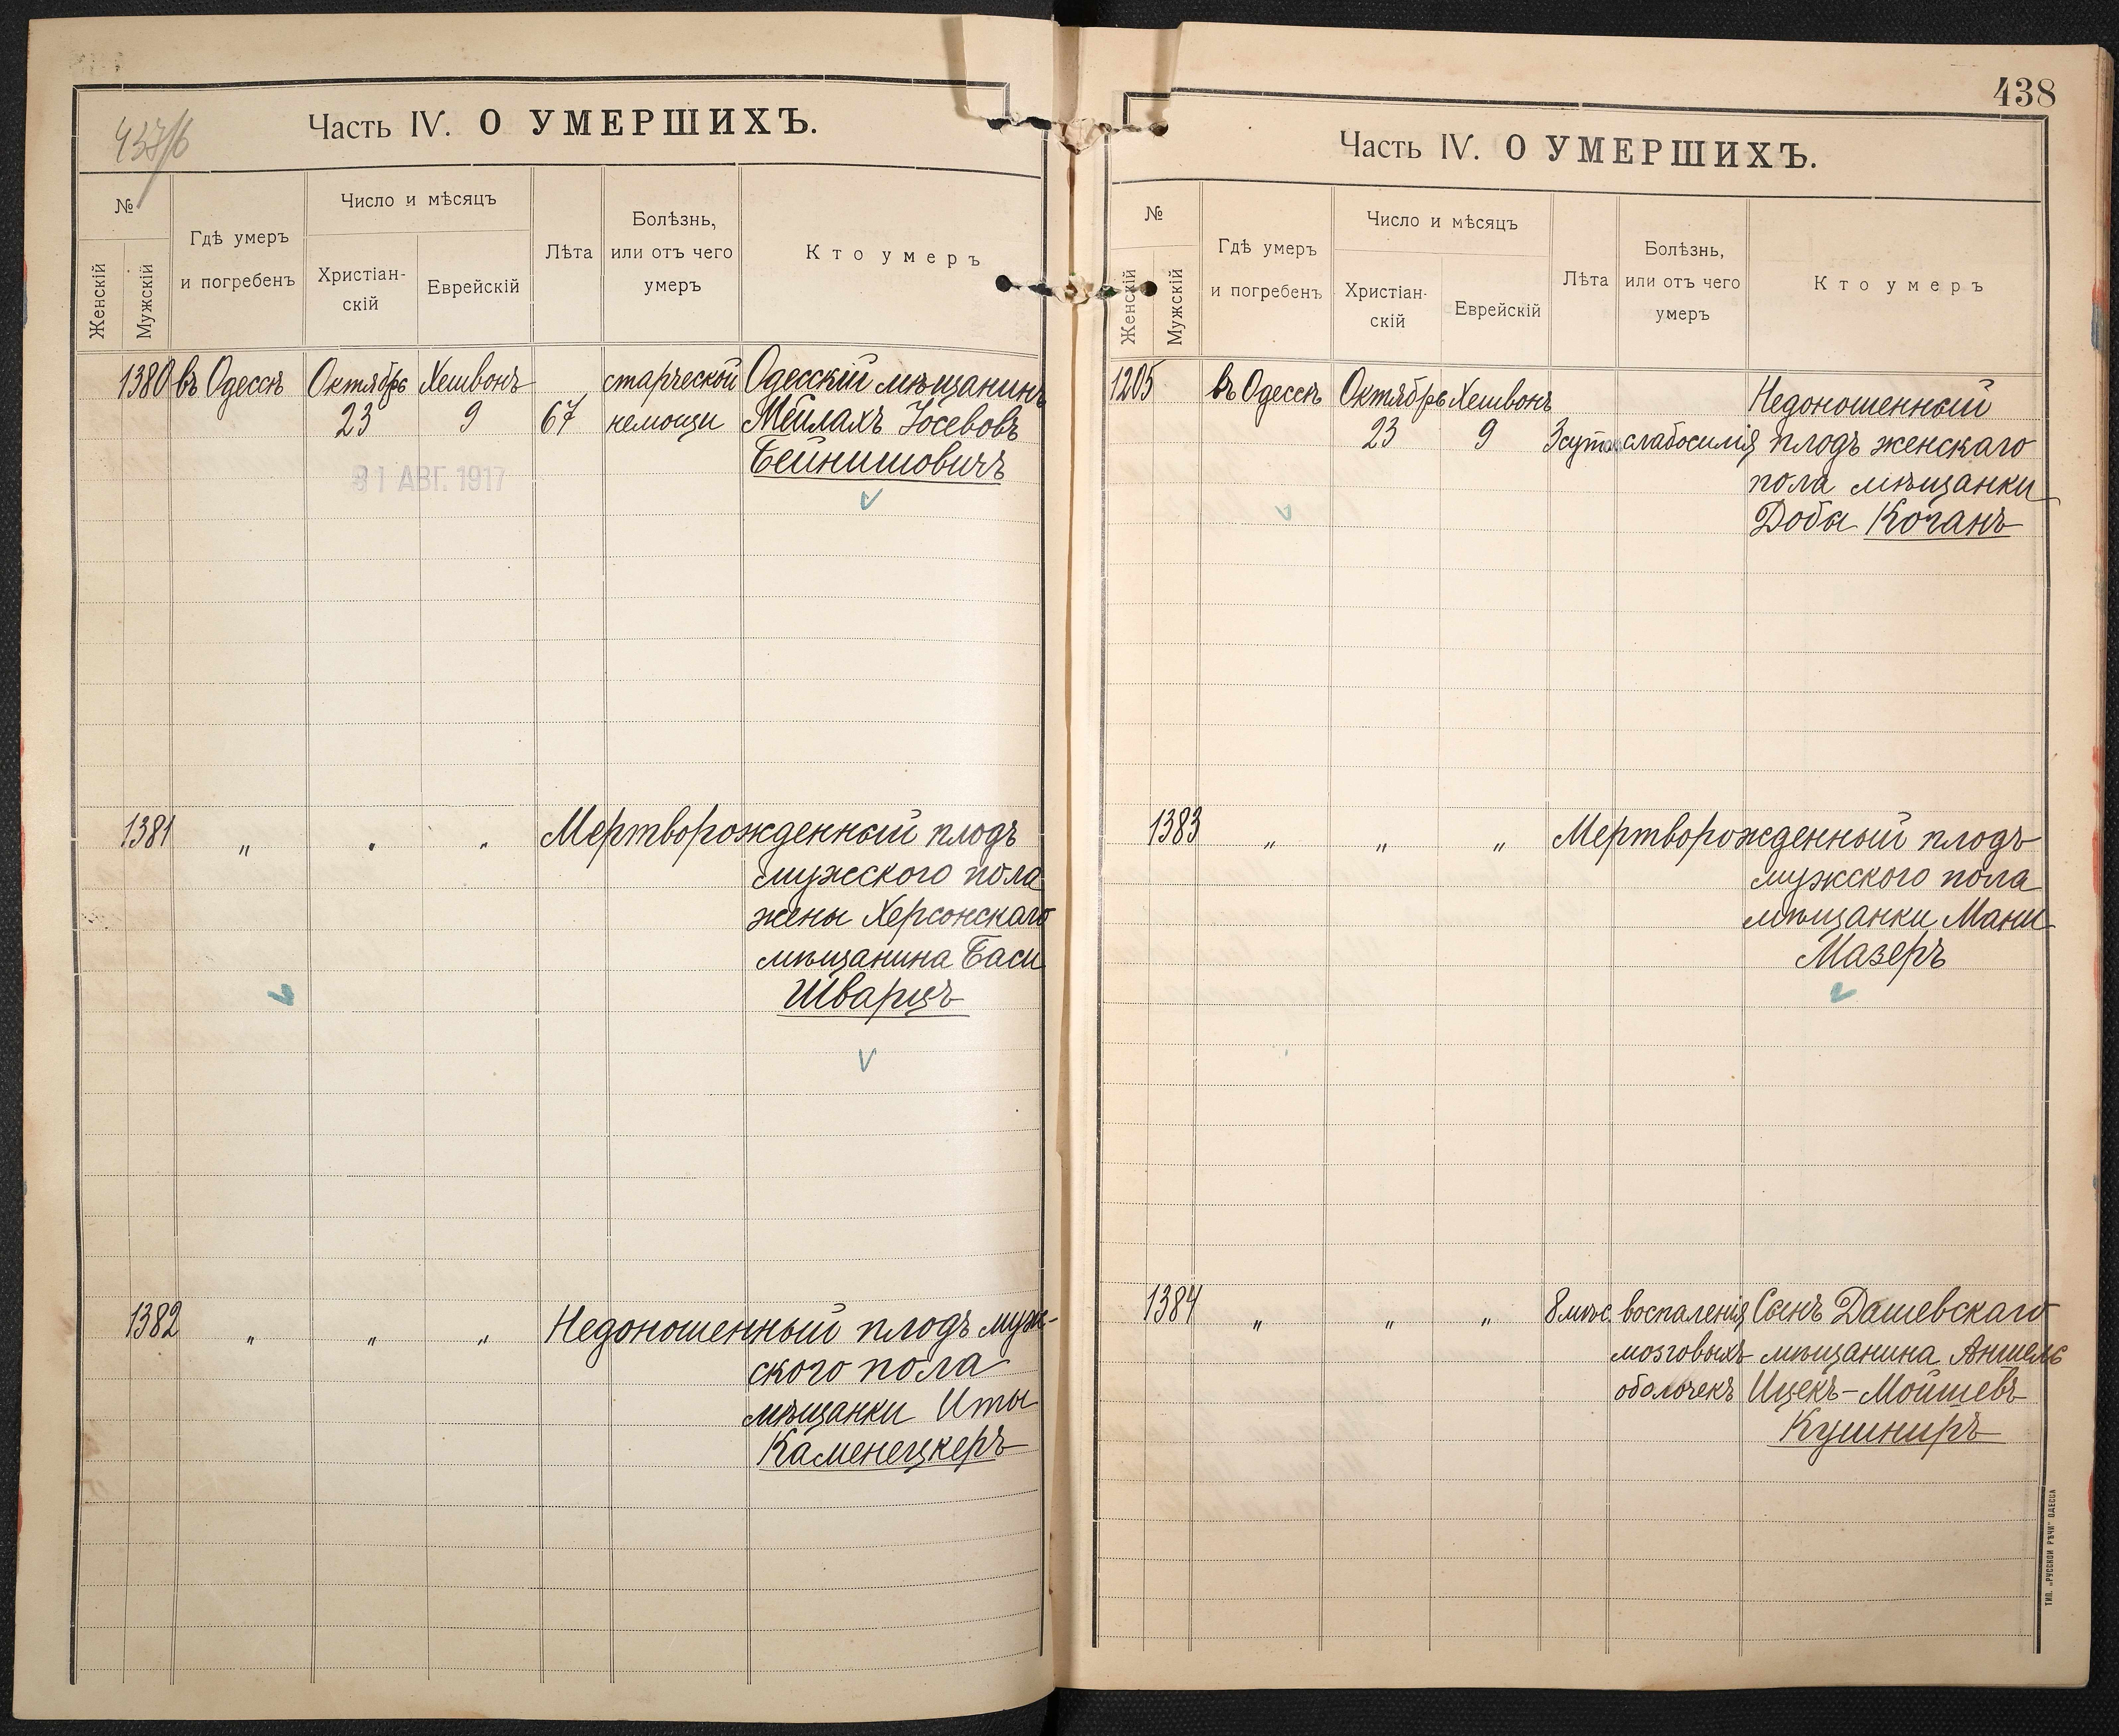 437/б
Часть IV. О УМЕРШИХЪ.
№
Женскій
Мужскій
Гдѣ умеръ
и погребенъ
Число и мѣсяцъ
Христіан-
скій
Еврейскій
Лѣта
Болѣзнь,
или отъ чего
умеръ
Кто умеръ
1380 въ Одессѣ Октябрь Хешвонъ старческой Одесскій мѣщанинъ
23 9 67 немощи Мейлахъ Іосевовъ
Бейнишовичъ
31 АВГ. 1917
1381 „ „ „ Мертворожденный плодъ
мужсского пола
жены Херсонскаго
мѣщанина Баси
Шварцъ
1382 „ „ „ Недоношенный плодъ муж-
ского пола
мѣщанки Иты
Каменецкеръ
438
Часть IV. О УМЕРШИХЪ.
№
Женскій
Мужскій
Гдѣ умеръ
и погребенъ
Число и мѣсяцъ
Христіан-
скій
Еврейскій
Лѣта
Болѣзнь,
или отъ чего
умеръ
Кто умеръ
1205 въ Одессѣ Октябрь Хешвонъ Недоношенный
23 9 3 сут. слабосилія плодъ женскаго
пола мѣщанки
Добы Коганъ
1383 „ „ „ Мертворожденный плодъ
мужского пола
мѣщанки Мани
Мазеръ
1384 „ „ „ 8 мѣс. воспаленія Сынъ Дашевскаго
мозговыхъ мѣщанина Аншель
оболочекъ Ицекъ-Мойшевъ
Кушниръ
ТИП. „РУССКОЙ РѢЧИ" ОДЕССА